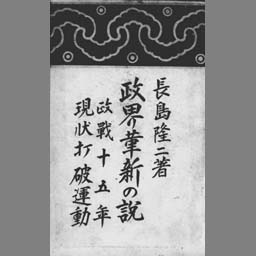 長島隆二著
政界革新の説
政戰十五年
現狀打破運動